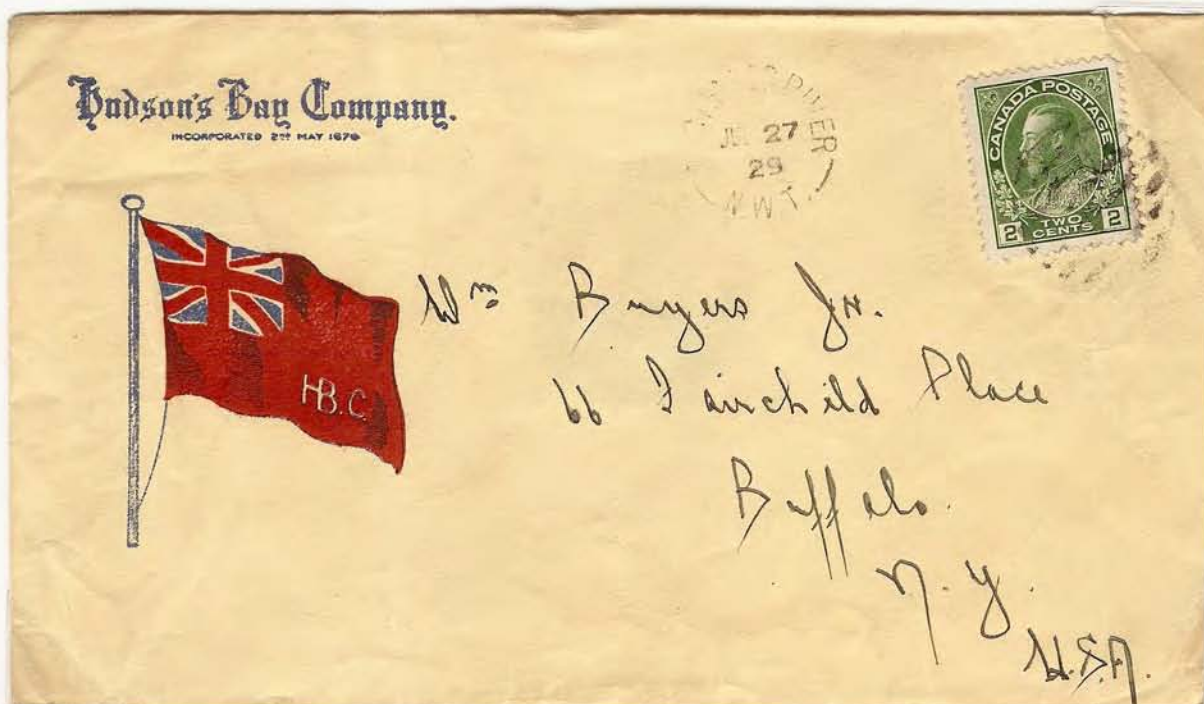 Hudson's Bay Company.
INCORPORATED 2ND MAY 1670
RIVER
JUL 27
29
N.W.T.
CANADA POSTAGE
2 TWO CENTS 2
H.B.C.
Wm Buyers Jr.
66 Fairchild Place
Buffalo.
N.Y.
U.S.A.